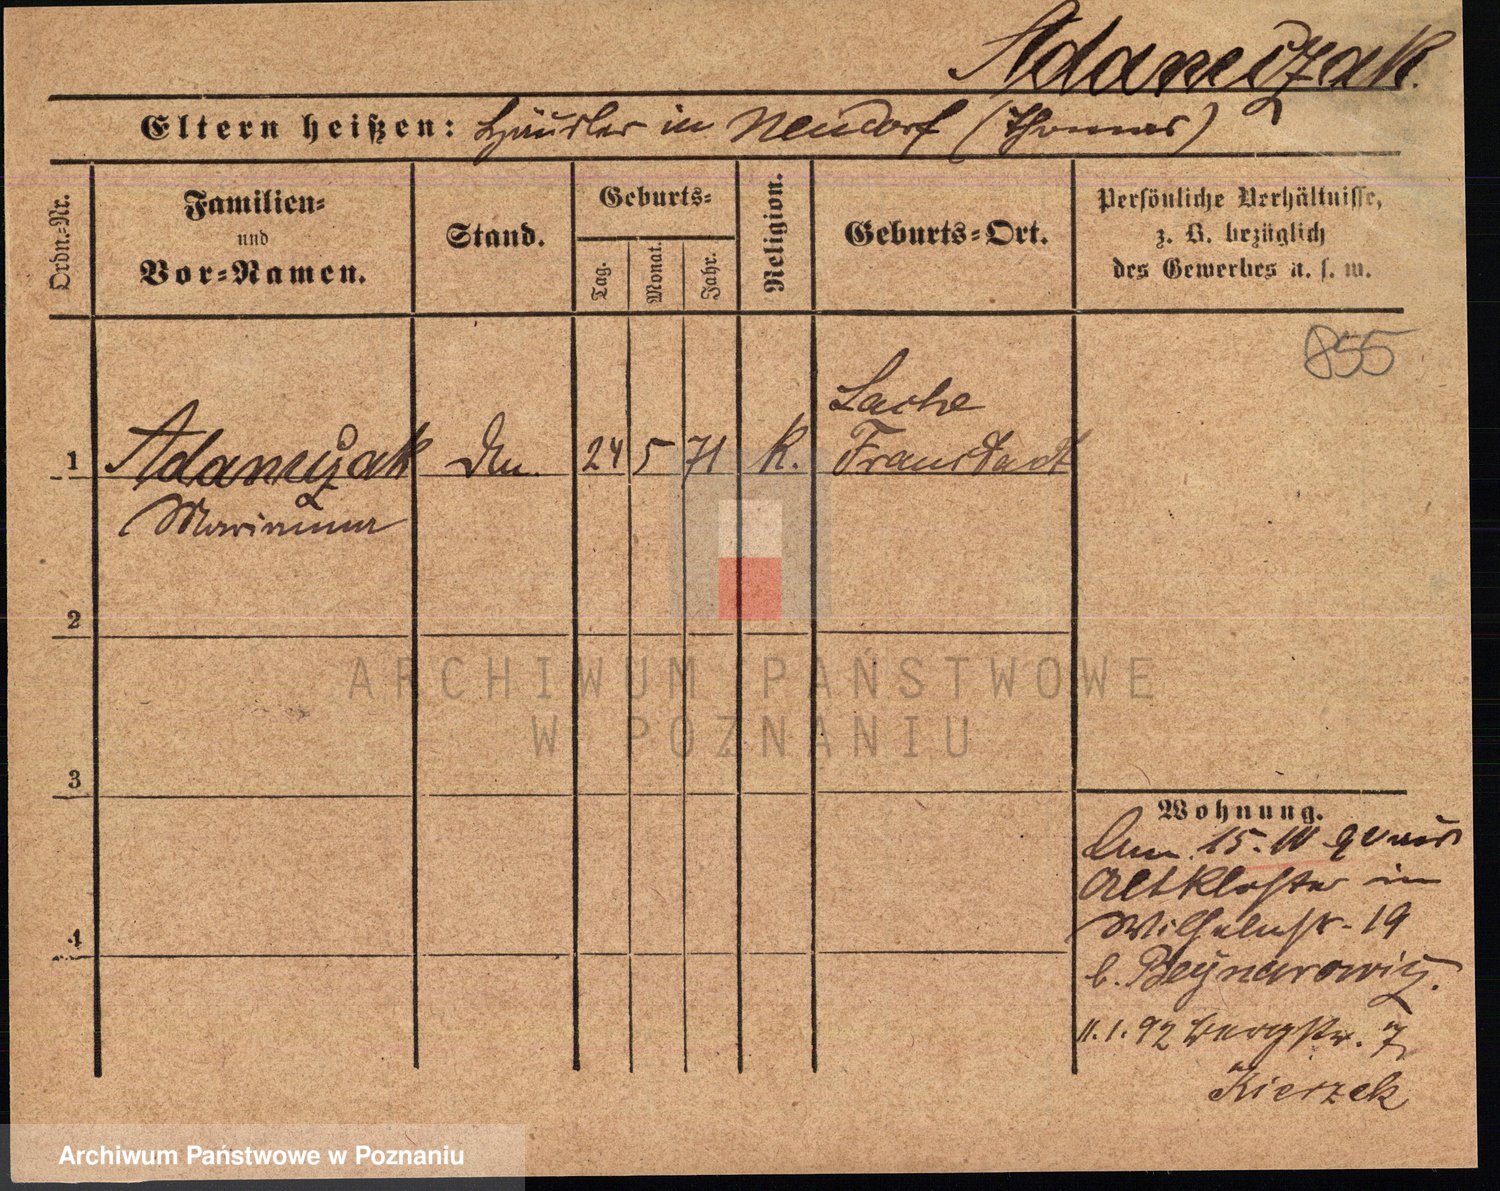 Adamczak.
Eltern heißen: Häusler in Neudorf (Thomas)
Ordn.-Nr.
Familien-
und
Vor-Namen.
Stand.
Geburts-
Tag.
Monat.
Jahr.
Religion.
Geburts-Ort.
Persönliche Verhältnisse,
z. B. bezüglich
des Gewerbes u. s. w.
855
Lache
1 Adamczak 24 5 71 K. Fraustadt
Marianna
2
3
4
Wohnung.
15. 10 90 aus
Altkloster in
Wilhelmstr. 19
b.
11.1.92 Bergstr. 7
Kierzek
ARCHIWUM PAŃSTWOWE
W POZNANIU
Archiwum Państwowe w Poznaniu